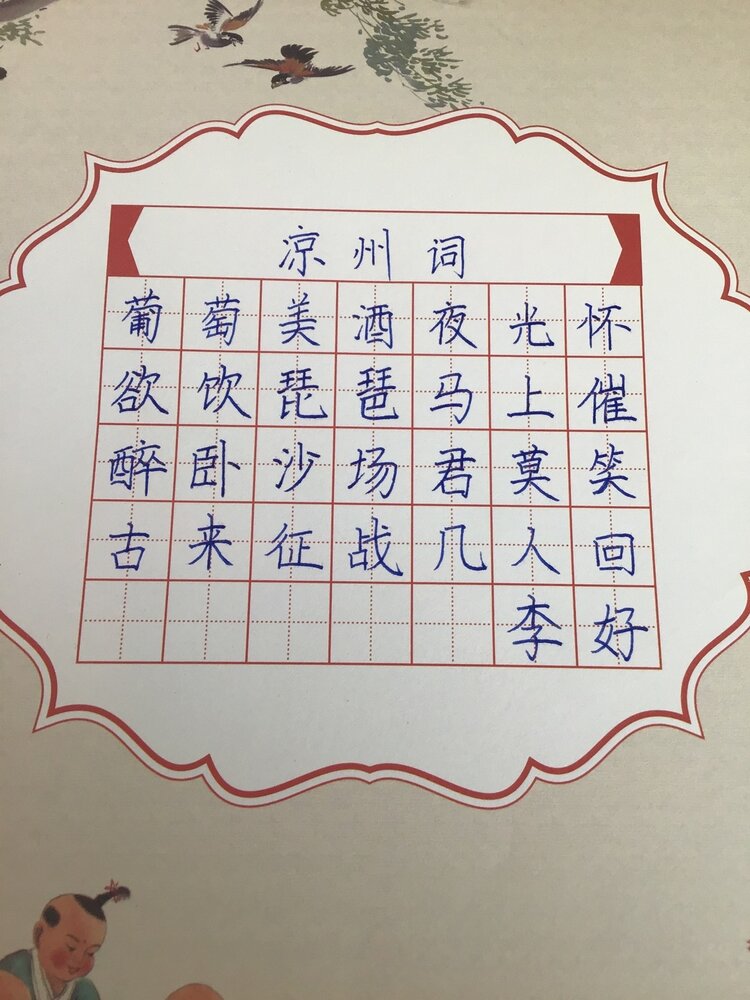 凉州词
葡萄美酒夜光怀
欲饮琵琶马上催
醉卧沙场君莫笑
古来征战几人回
李好